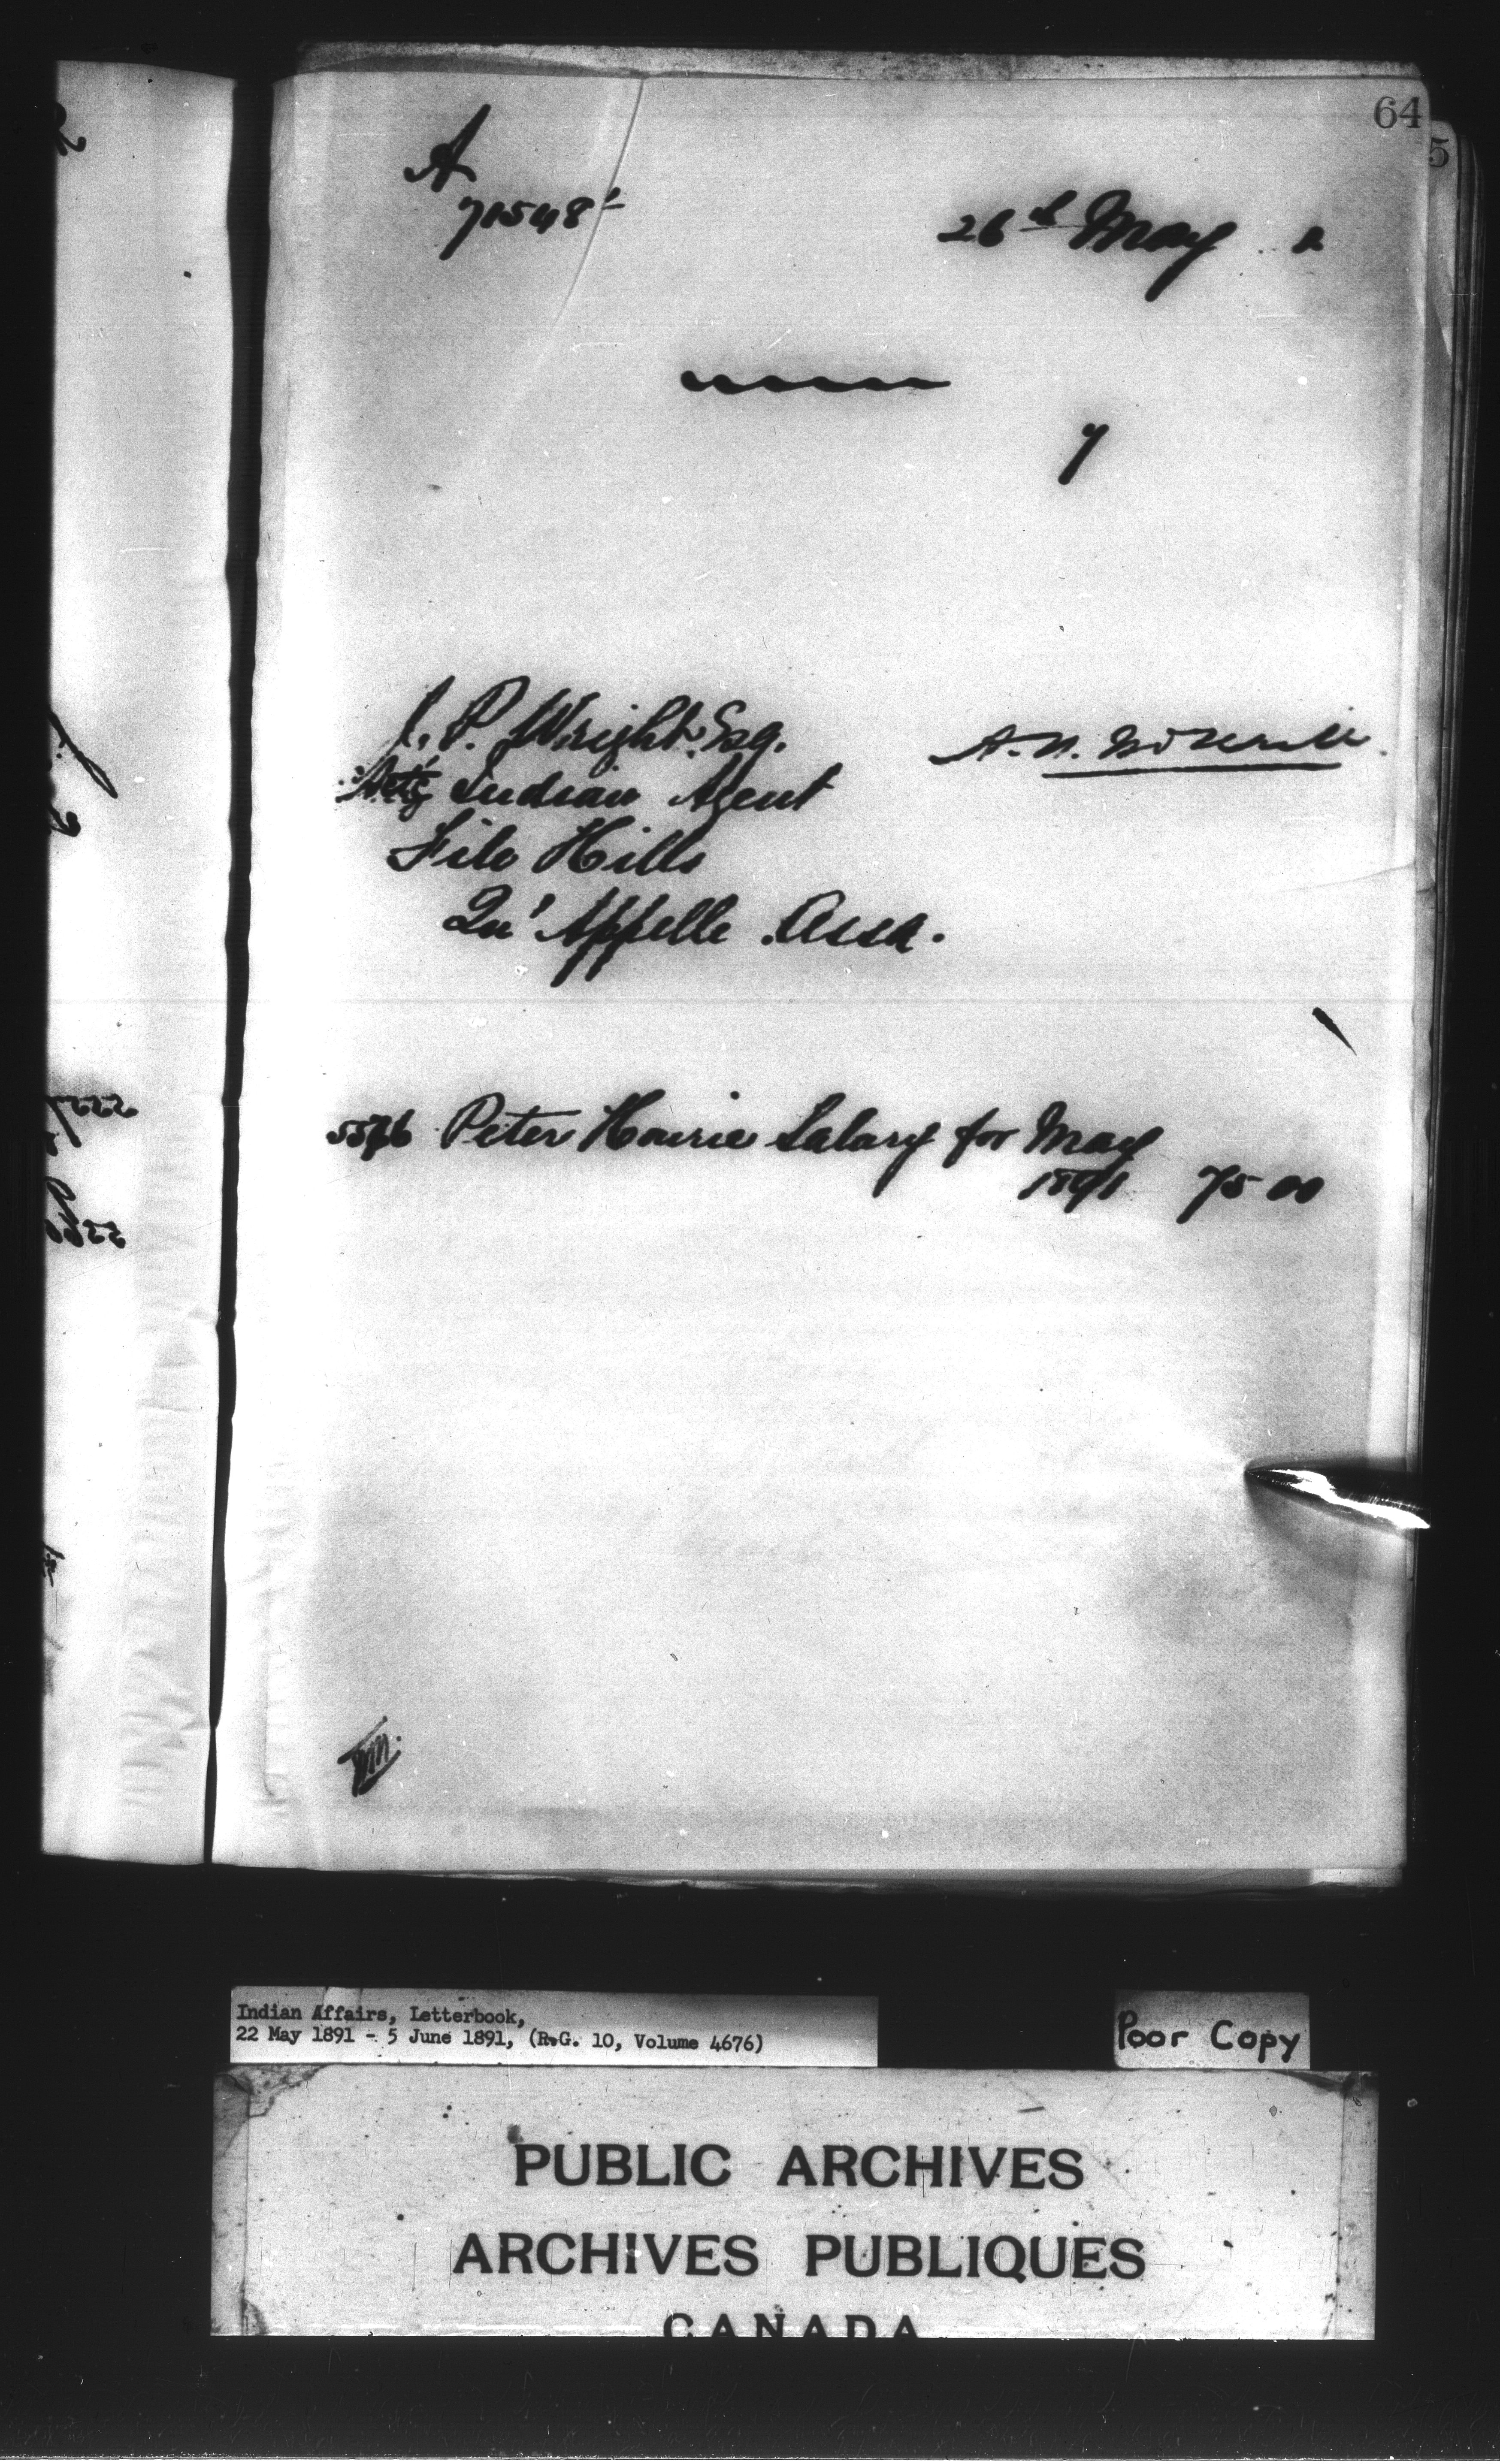 64
5
A
71548
26th May 1
7
J. P. Wright Esq.
Actg Indian Agent
File Hills
Qu'Appelle Assa.
5576 Peter Hourie Salary for May
1891 75 00
Indian Affairs, Letterbook,
22 May 1891 - 5 June 1891, (R.G. 10, Volume 4676)
Poor Copy
PUBLIC ARCHIVES
ARCHIVES PUBLIQUES
CANADA